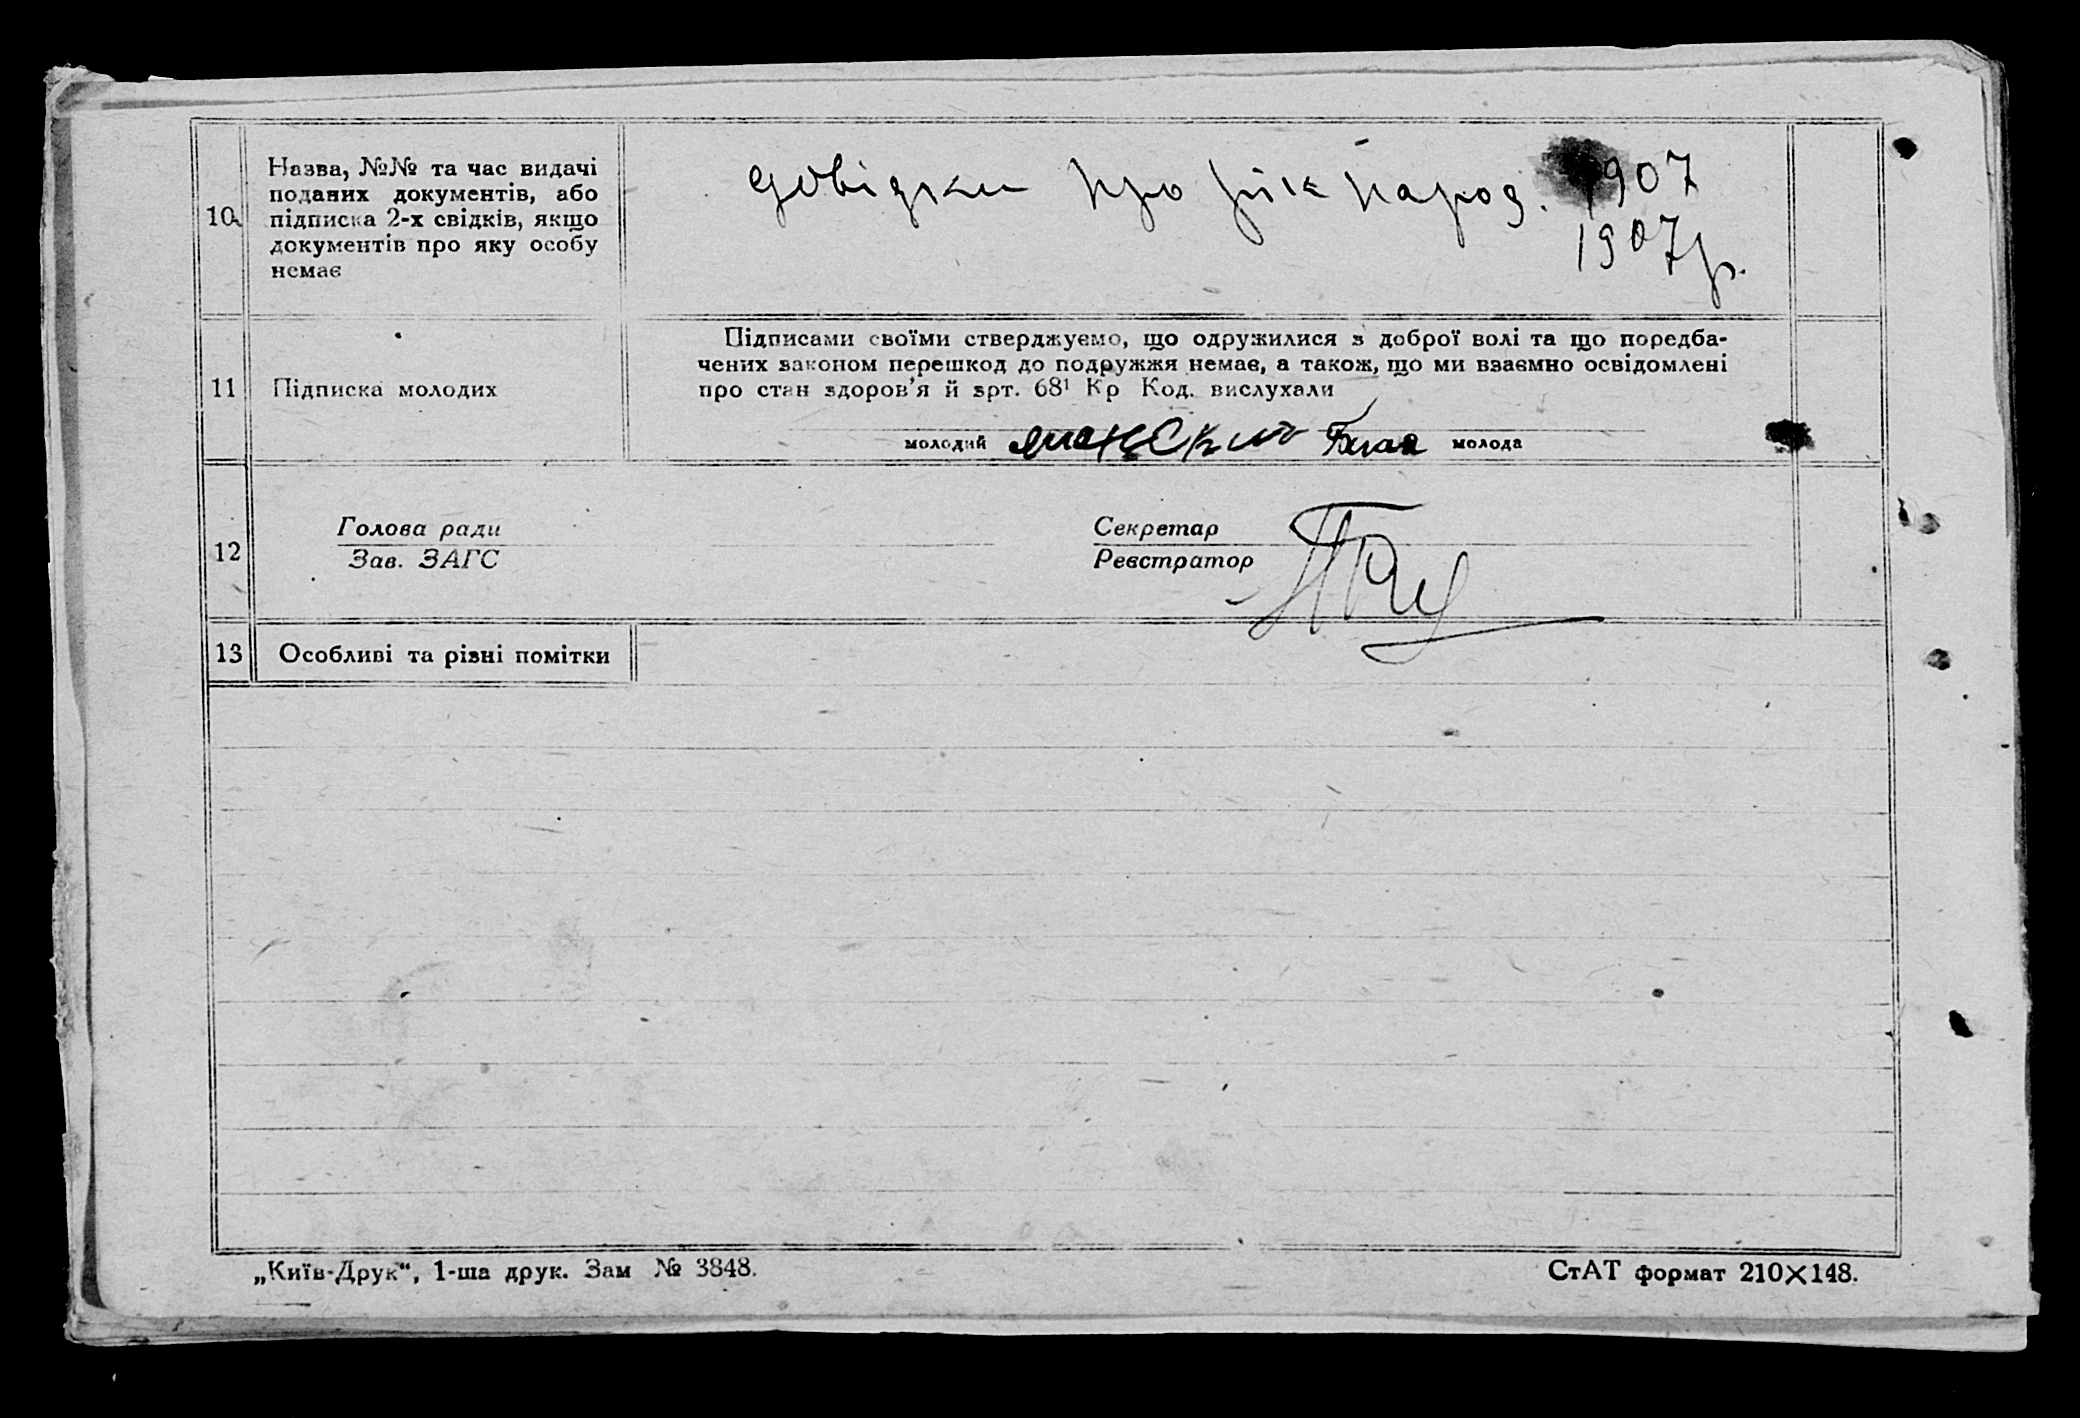 10. Назва, №№ та час видачі
поданих документів, або
підписка 2-х свідків, якщо
документів про яку особу
немає
довідки про рік народ. 1907
1907 р.
11 Підписка молодих
Підписами своїми стверджуємо, що одружилися з доброї волі та що поредба-
чених законом перешкод до подружжя немає, а також, що ми взаємно освідомлені
про стан здоров'я й врт. 68¹ Кр Код. вислухали
молодий молода
12 Голова ради Секретар
Зав. ЗАГС Реєстратор
13 Особливі та різні помітки
„Київ-Друк“, 1-ша друк. Зам № 3848. СтАТ формат 210×148.